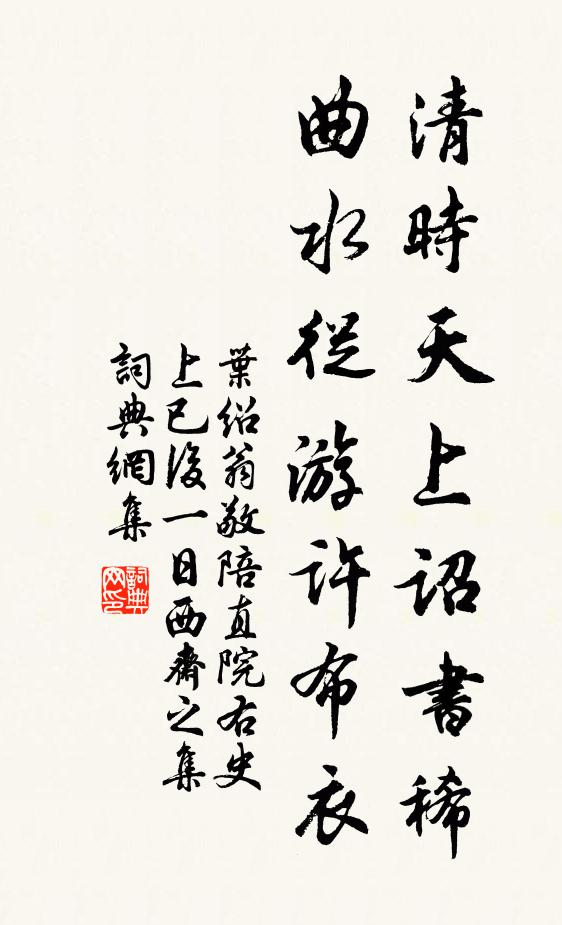 清時天上詔書稀
曲水從游許布衣
葉紹翁敬陪直院右史
上巳後一日西齋之集
詞典網集
詞典
网印